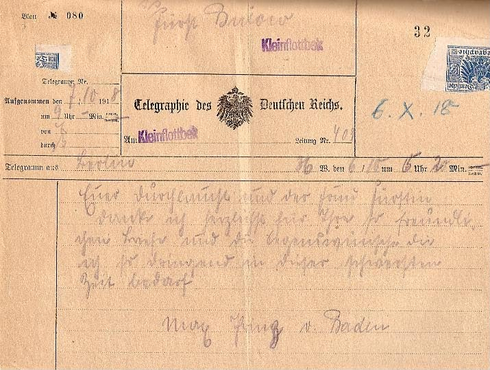 Blatt № 080
Fürst Bülow
Kleinflottbek
32
Telegramm Nr.
Aufgenommen den 7/10 1918
um Uhr Min.
von
durch
Telegraphie des Deutschen Reichs.
6. X. 18
Amt Kleinflottbek
Leitung Nr. 409
Telegramm aus Berlin 36 W. den 6/10 um 5 Uhr 20 Min.
Euer Durchlaucht und der Frau Fürstin
danke ich herzlichst für Ihre so freundli-
chen Briefe und die Segenswünsche die
ich so dringend in dieser schwersten
Zeit bedarf
Max Prinz v. Baden